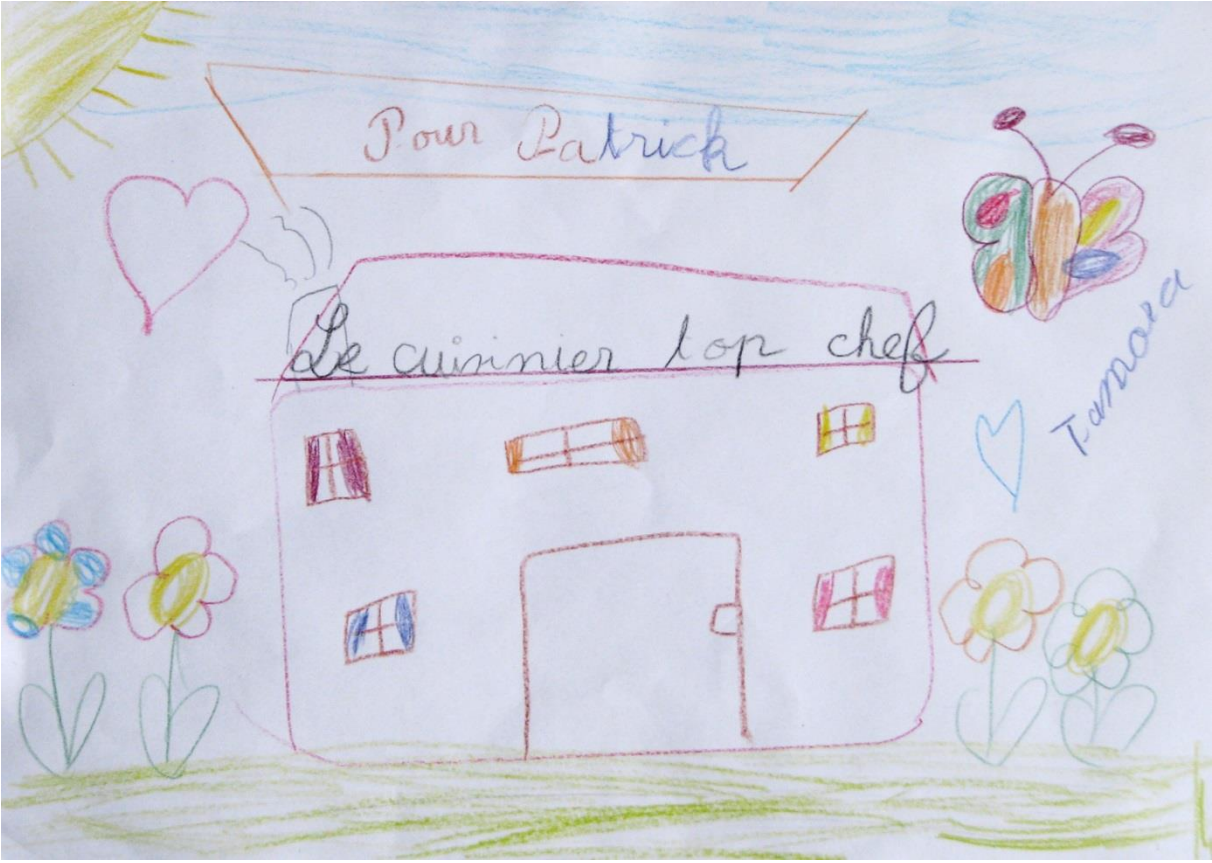 Pour Patrick
Le cuisinier top chef
Tamara